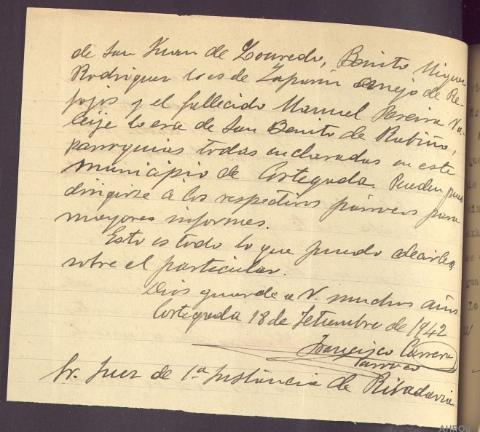 de San Juan de Louredo, Benito Migue
Rodriguez lo es de Zaparin anejo de Re
jojos y el fallecido Manuel Pereira Va
leije lo era de San Benito de Rabiño,
parroquias todas enclavadas en este
municipio de Cortegada. Pueden, pues
dirigirse a los respectivos párrocos para
mayores informes.
Esto es todo lo que puedo decirle,
sobre el particular.
Dios guarde a V. muchos años
Cortegada 18 de Setiembre de 1942
Francisco Carrera
Parroco
Sr. Juez de 1.ª Instancia de Ribadavia